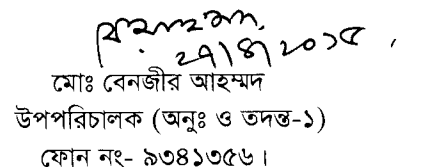 ২৭/৪/২০১৫
মোঃ বেনজীর আহম্মদ
উপপরিচালক (অনুঃ ও তদন্ত-১)
ফোন নং- ৯৩৪১৩৫৬।